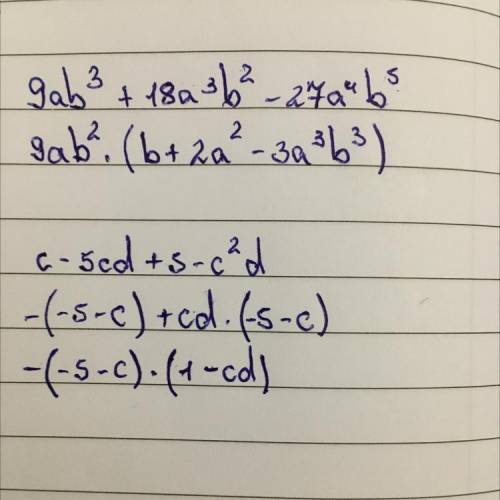 9ab³ + 18a³b² - 27a⁴b⁵
9ab² · (b + 2a² - 3a³b³)
c - 5cd + 5 - c²d
-(-5 - c) + cd · (-5 - c)
-(-5 - c) · (1 - cd)